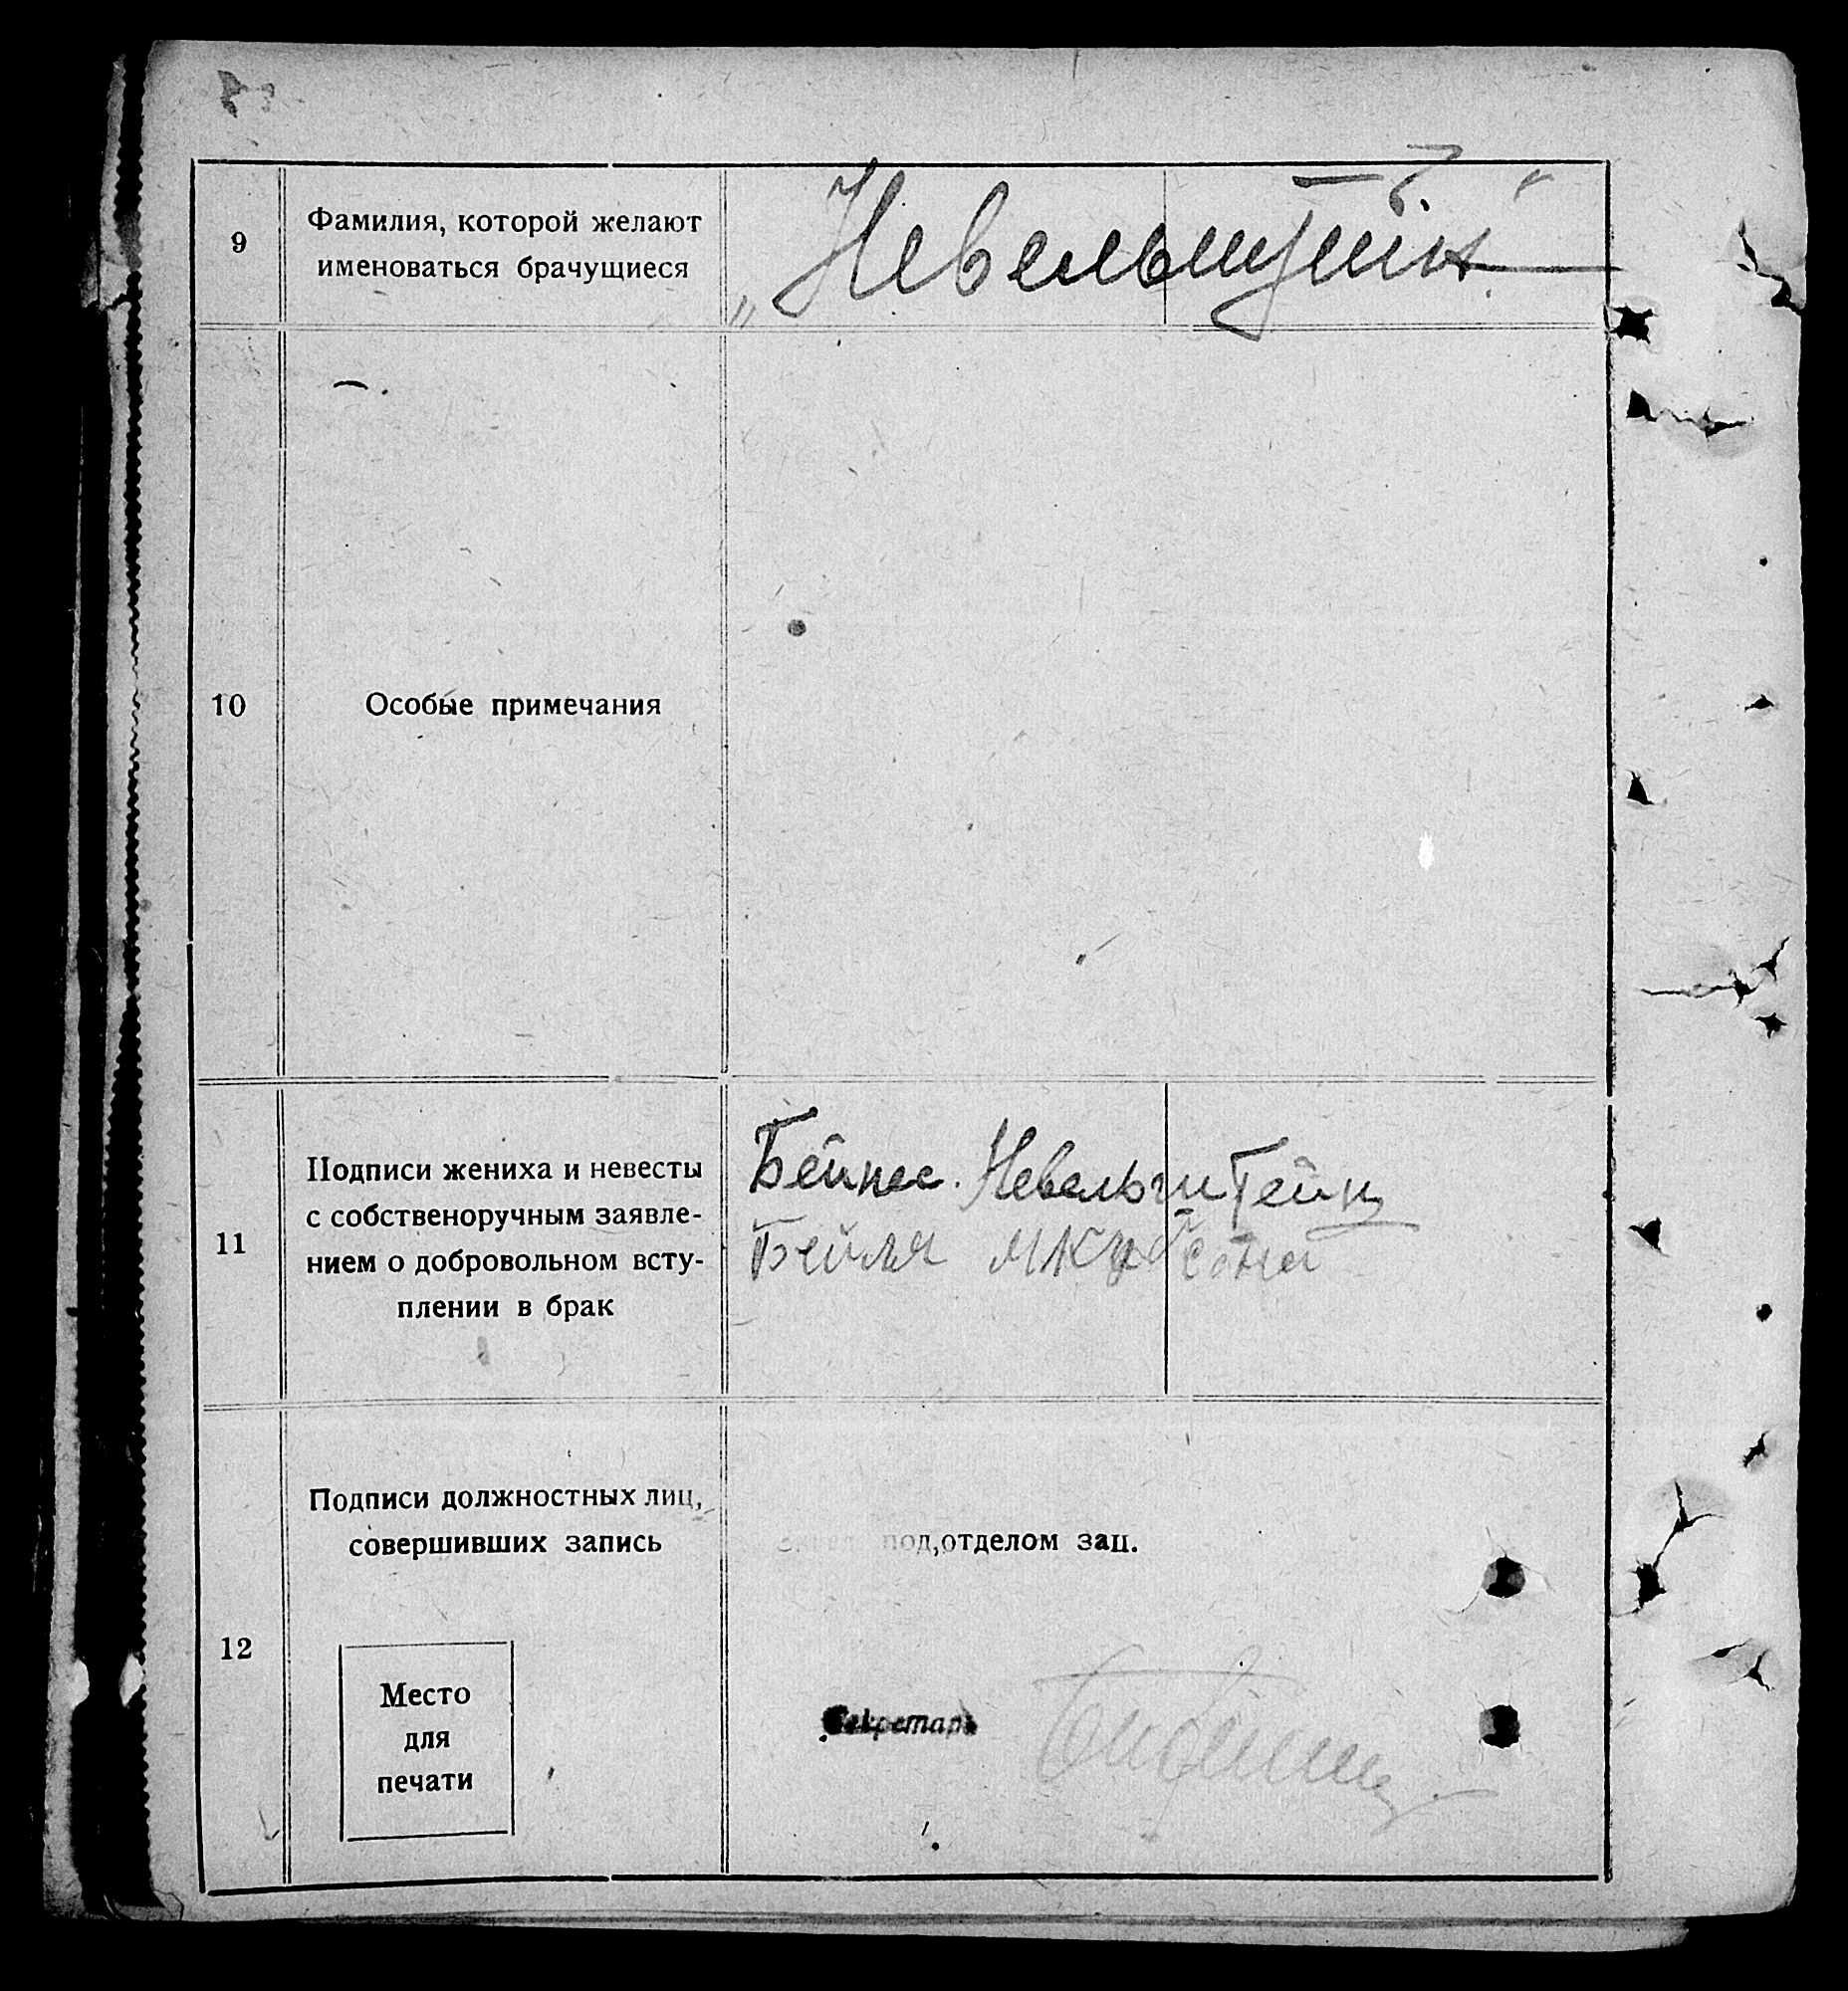 9
Фамилия, которой желают
именоваться брачущиеся
„Невельштейн“
10
Особые примечания
11
Подписи жениха и невесты
с собственоручным заявле-
нием о добровольном всту-
плении в брак
Бейнес. Невельштейн
Бейля
12
Подписи должностных лиц,
совершивших запись
под,отделом зап.
Место
для
печати
Секретарь